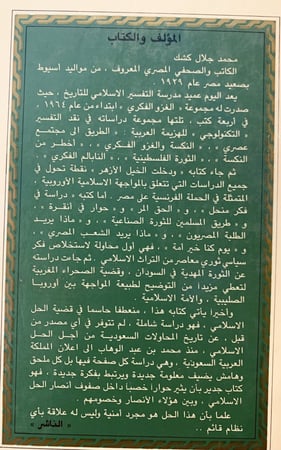 المؤلف والكتاب
محمد جلال كشك
الكاتب والصحفي المصري المعروف ، من مواليد أسيوط
بصعيد مصر عام ١٩٢٩
يعد اليوم عميد مدرسة التفسير الاسلامي للتاريخ ، حيث
صدرت له مجموعة « الغزو الفكري » ابتداء من عام ١٩٦٤
في أربعة كتب ، تلتها مجموعة دراساته في نقد التفسير
« التكنولوجي » للهزيمة العربية : « الطريق الى مجتمع
عصري » ، « النكسة والغزو الفكري » ، « أخطر من
النكسة » ، « الثورة الفلسطينية » ، « النابالم الفكري » .
ثم جاء كتابه « ودخلت الخيل الأزهر » نقطة تحول في
جميع الدراسات التي تتعلق بالمواجهة الاسلامية الأوروبية ،
المتمثلة في الحملة الفرنسية على مصر . أما كتبه « دراسة في
فكر منحل » ، و « الحق المر » و « حوار في أنقرة » ،
و « طريق المسلمين للثورة الصناعية » ، و « ماذا يريد
الطلبة المصريون » ، « ماذا يريد الشعب المصري » ،
و « يوم كنا خير أمة » ، فهي أول محاولة لاستخلاص فكر
سياسي ثوري معاصر من التراث الاسلامي . ثم جاءت دراسته
عن الثورة المهدية في السودان ، وقضية الصحراء المغربية
لتعطي مزيدا من التوضيح لطبيعة المواجهة بين أوروبا
الصليبية ، والأمة الاسلامية .
وأخيرا يأتي كتابه هذا ، منعطفا حاسما في قضية الحل
الاسلامي ، فهو دراسة شاملة ، لم تتوفر في أي مصدر من
قبل ، عن تاريخ المحاولات السعودية من أجل الحل
الاسلامي ، منذ محمد بن عبد الوهاب الى اعلان المملكة
العربية السعودية ، وهي دراسة كل صفحة فيها بل كل ملحق
وهامش يضيف معلومة جديدة ويرتبط بفكرة جديدة ، فهو
كتاب جدير بأن يثير حوارا خصبا داخل صفوف أنصار الحل
الاسلامي ، وبين هؤلاء الأنصار وخصومهم .
علما بأن هذا الحل هو مجرد امنية وليس له علاقة بأي
نظام قائم ..
« الناشر »